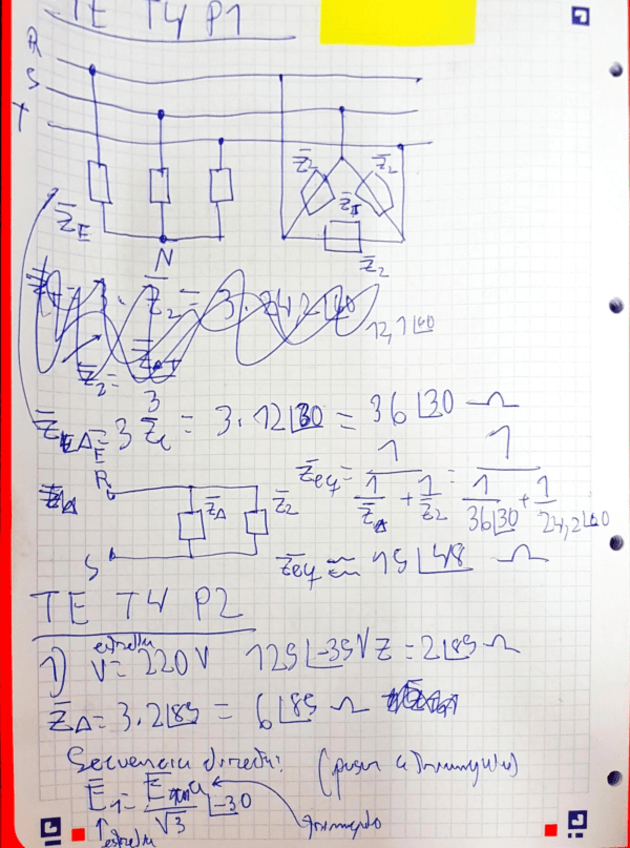 TE T4 P1
R
S
T
Z̄E
N
Z̄2 Z̄2
Z̄2
3 · Z̄2 = 3 · 24,2∠60
12,1∠60
Z̄2 =
Z̄EΔ = 3 Z̄E = 3 · 12∠30 = 36∠30 Ω
R
Z̄Δ Z̄2
S
Z̄eq = 1 / (1/Z̄Δ + 1/Z̄2) = 1 / (1/36∠30 + 1/24,2∠60)
Z̄eq ≈ 15∠48 Ω
TE T4 P2
estrella
1) V = 220 V 125∠-35 V Z = 2∠85 Ω
Z̄Δ = 3 · 2∠85 = 6∠85 Ω
Secuencia directa: (pasar a triangulo)
Ē1 = / √3 ∠-30
estrella
triangulo